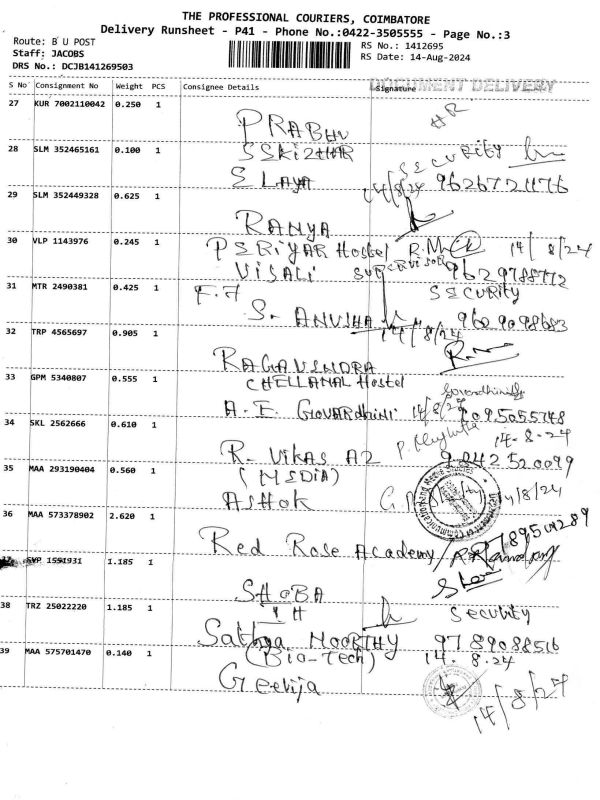 THE PROFESSIONAL COURIERS, COIMBATORE
Delivery Runsheet - P41 - Phone No.:0422-3505555 - Page No.:3
Route: B U POST
RS No.: 1412695
Staff: JACOBS
RS Date: 14-Aug-2024
DRS No.: DCJB141269503
DOCUMENT DELIVERY
S No Consignment No Weight PCS Consignee Details Signature
27 KUR 7002110042 0.250 1
PRABHU
28 SLM 352465161 0.100 1
SECURITY
ELAYA 14/8/24
29 SLM 352449328 0.625 1
RANYA
30 VLP 1143976 0.245 1
PERIYAR Hostel 14/8/24
VISALI SUPERVISOR
31 MTR 2490381 0.425 1
SECURITY
S. ANUSHA 14/8/24
32 TRP 4565697 0.905 1
RAGAVENDRA
CHELLAMAL Hostel
33 GPM 5340807 0.555 1
A. E. GOVARDHINI 14/8/24
34 SKL 2562666 0.610 1
14-8-24
R. VIKAS
35 MAA 293190404 0.560 1
(MEDIA)
ASHOK 14/8/24
36 MAA 573378902 2.620 1
Red Rose Academy
SVP 1551931 1.185 1
SHOBA
38 TRZ 25022220 1.185 1
Security
Sathya MOORTHY 9789088516
39 MAA 575701470 0.140 1
(Bio-Tech) 14.8.24
Geerija
14/8/24